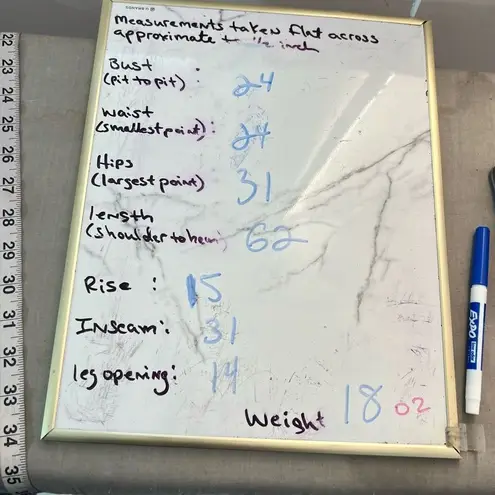 Measurements taken flat across
approximate + ½ inch
Bust :
(pit to pit) 24
waist
(smallest point): 24
Hips
(largest point) 31
length
(shoulder to hem) 62
Rise : 15
Inseam: 31
leg opening: 14
Weight 18 oz
22
23
24
25
26
27
28
29
30
31
32
33
34
35
EXPO